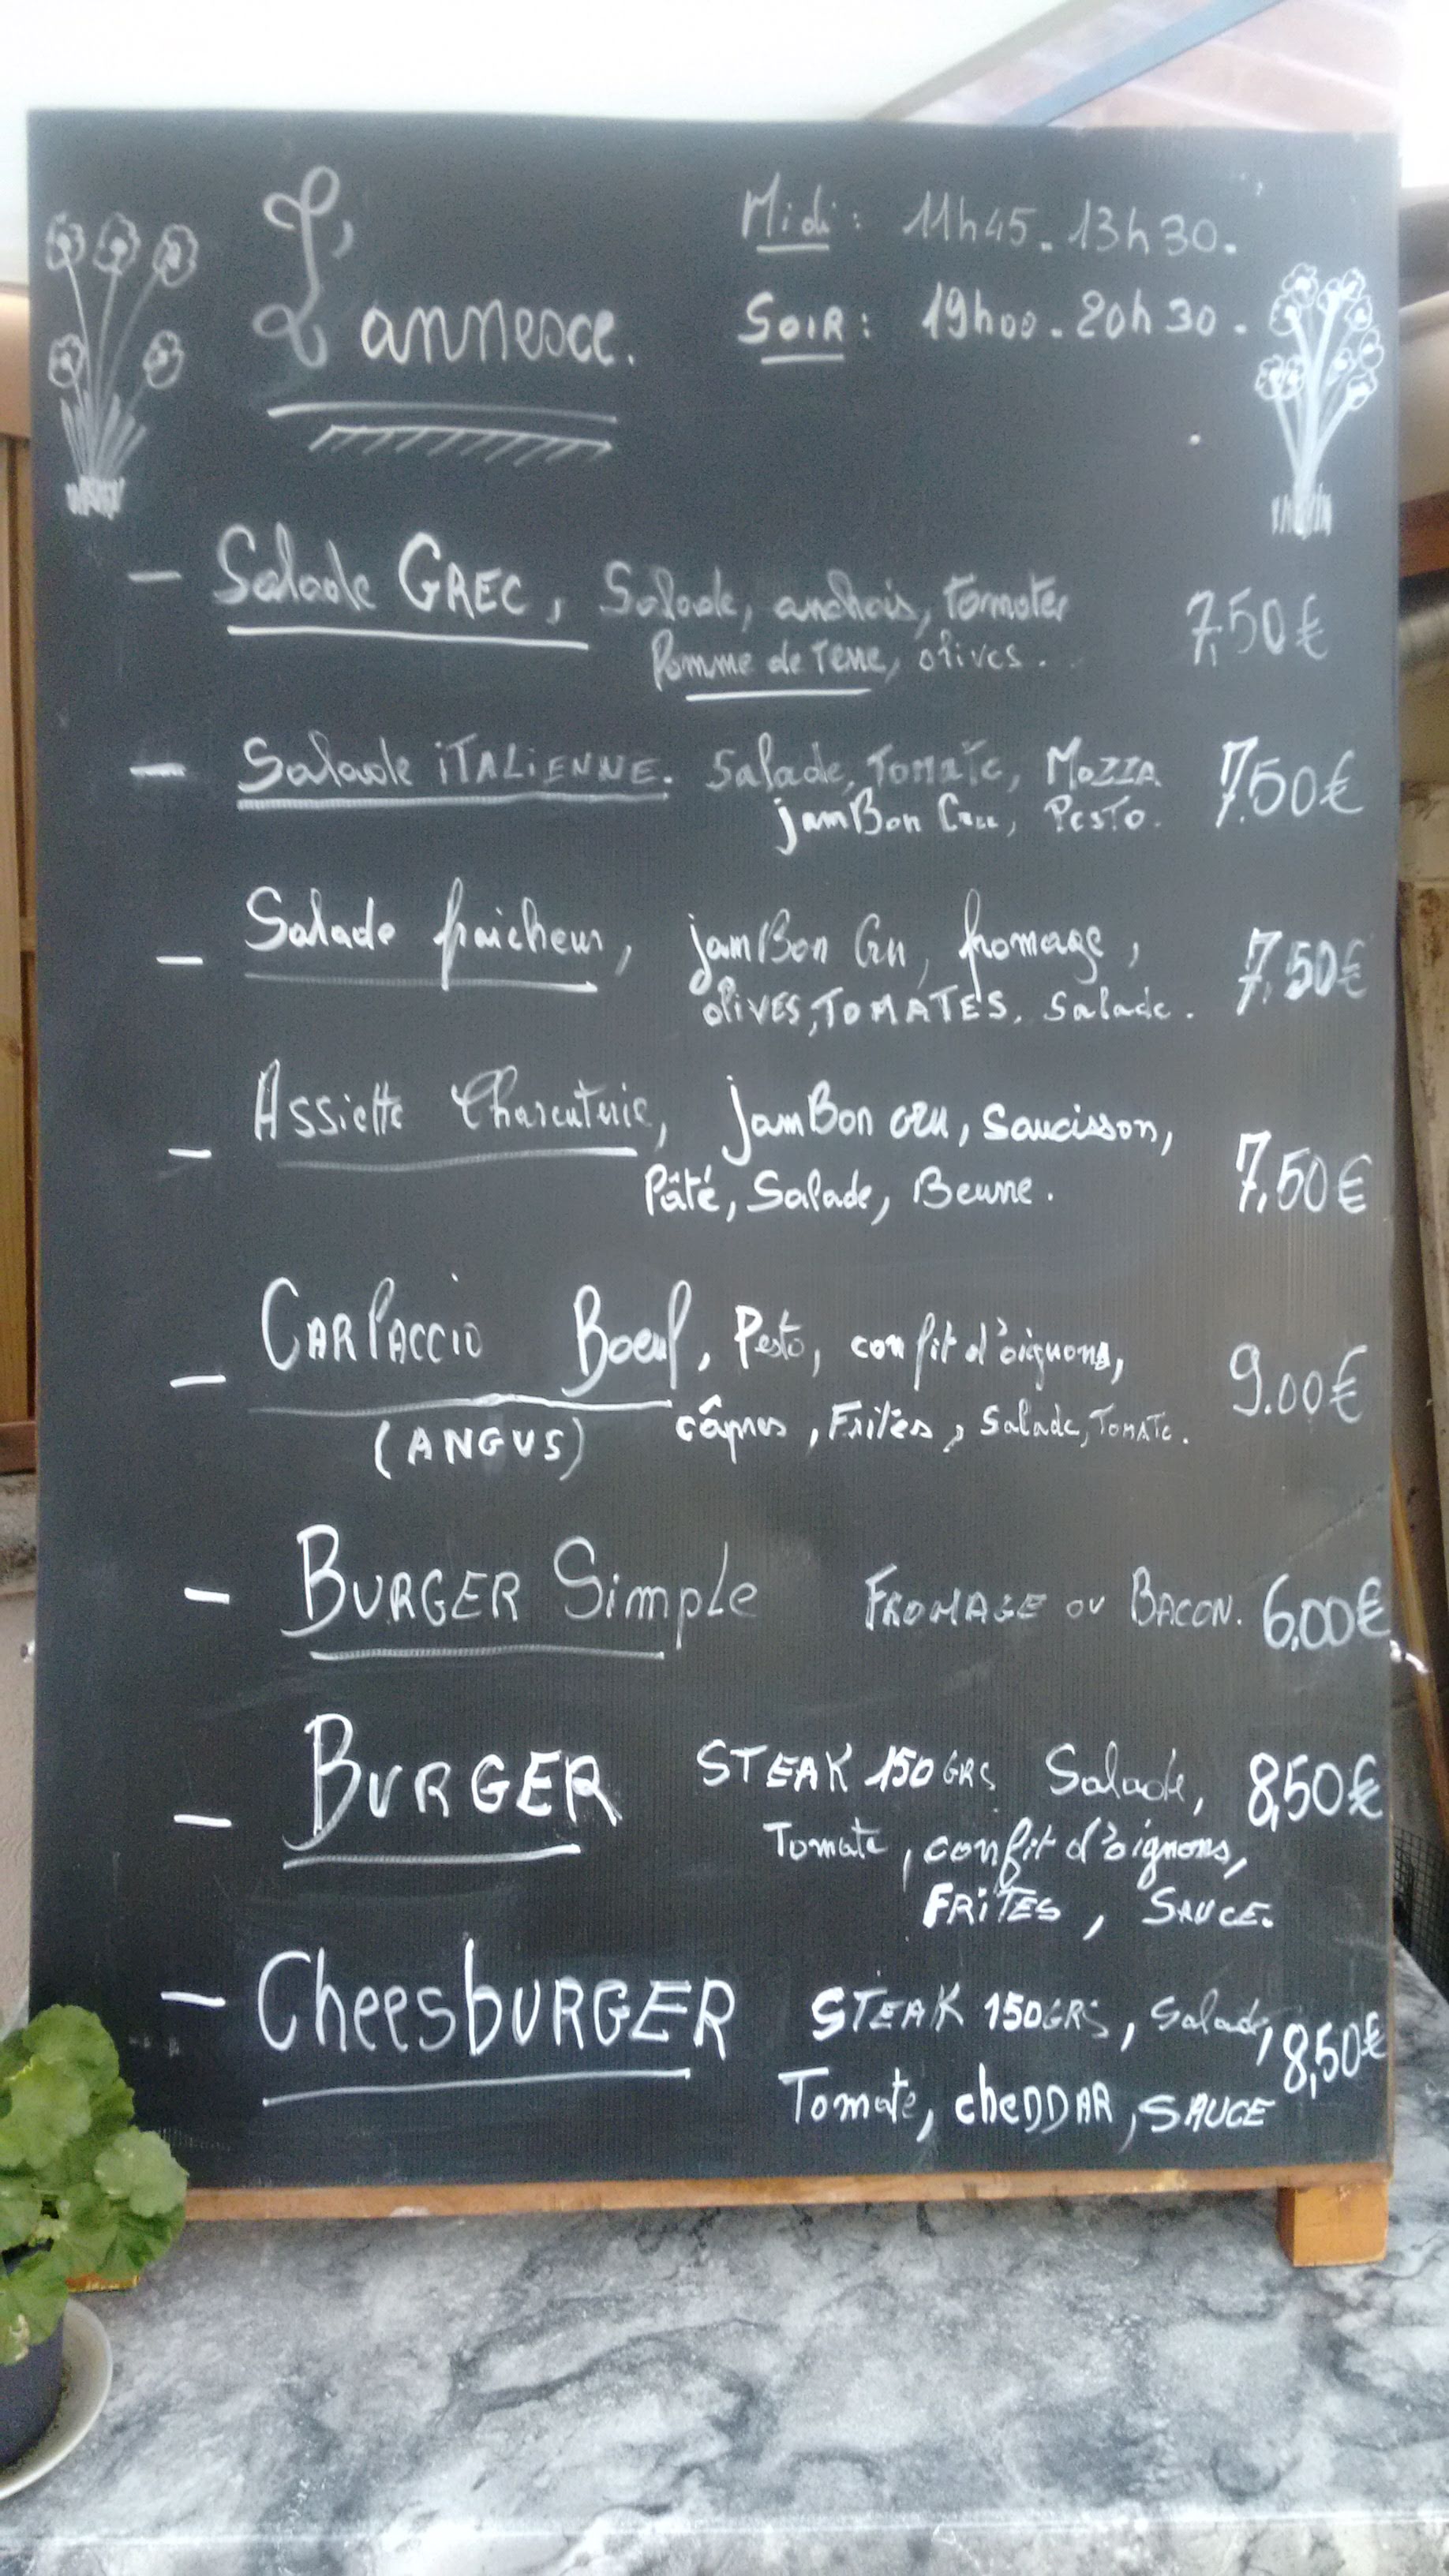 L'annexe.
Midi: 11h45. 13h30.
SOIR: 19h00. 20h30.
- Salade GREC, Salade, anchois, tomates 7,50€
Pomme de Terre, olives.
- Salade iTALiENNE. Salade, Tomate, MOZZA 7,50€
jamBon Cru, PESTO.
- Salade fraicheur, jamBon Cru, fromage, 7,50€
oliVES, TOMATES, Salade.
- Assiette Charcuterie, JamBon CRU, Saucisson, 7,50€
Pâté, Salade, Beurre.
- CARPACCIO Boeuf, Pesto, confit d'oignons, 9.00€
(ANGUS) câpres, Frites, Salade, TOMATE.
- BURGER Simple FROMAGE OU BACON. 6,00€
- BURGER STEAK 150GRS Salade, 8,50€
Tomate, confit d'oignons,
FRiTES, SAUCE.
- CheesbURGER STEAK 150GRS, Salade, 8,50€
Tomate, cheDDAR, SAUCE